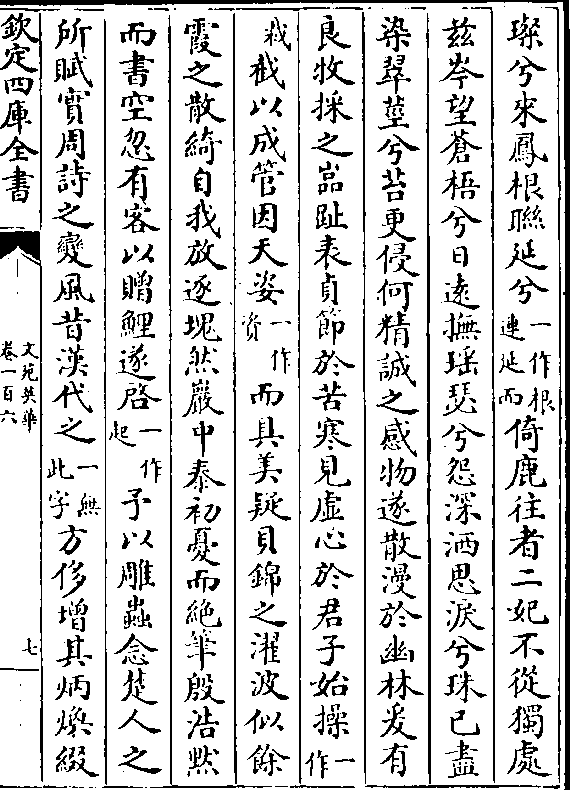 璨兮來鳳根聯延兮一作根連延而倚鹿往者二妃不從獨處
兹岑望蒼梧兮日遠撫瑶瑟兮怨深洒思淚兮珠已盡
染翠莖兮苔更侵何精誠之感物遂散漫於幽林爰有
良牧採之嵓趾表貞節於苦寒見虚心於君子始操一作
栽截以成管因天姿一作資而具美疑貝錦之濯波似餘
霞之散綺自我放逐塊然巖中泰初憂而絶筆殷浩黙
而書空忽有客以贈鯉遂啓一作起予以雕蟲念楚人之
所賦實周詩之變風昔漢代之一無此字方侈增其炳煥綴
欽定四庫全書
文苑英華
卷一百六
七